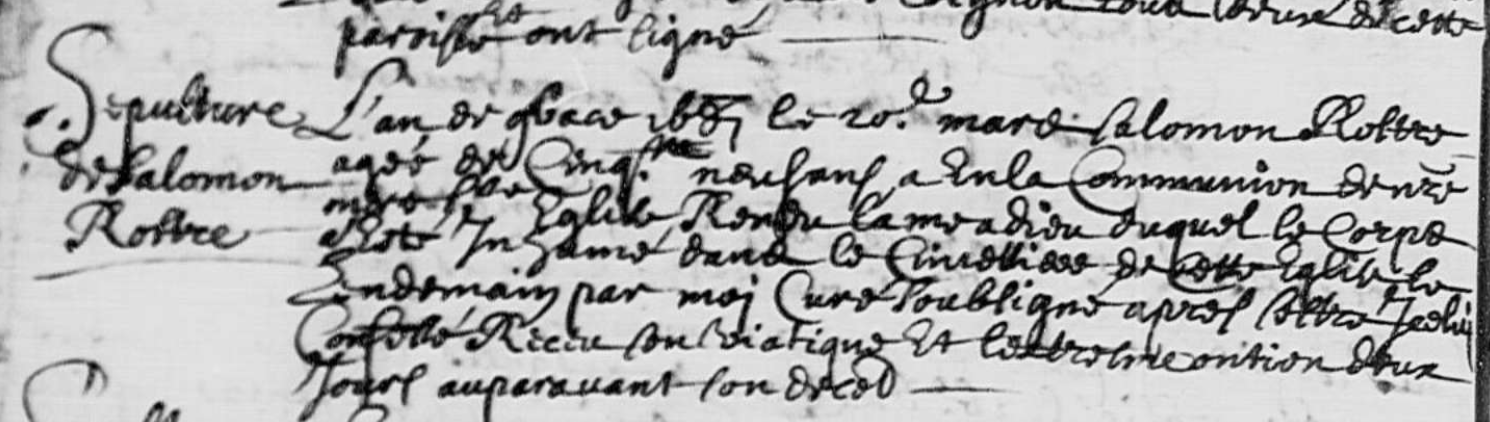 tous deux de cette
paroisse ont signé
Sepulture
de Salomon
Rottre
L'an de grace 1687 le 20.e mars salomon Rottre
agée de Cinq.te neuf ans a En la Communion de nre
mere ste Eglise Rendu lame a dieu duquel le Corps
a Este In humé dans le Cimettiere de cette Eglise le
Lendemain par moi Curé soubsigné apres s'estre
Confessé Receu son viatique Et lextresme onction deux
Jours auparavant son deced